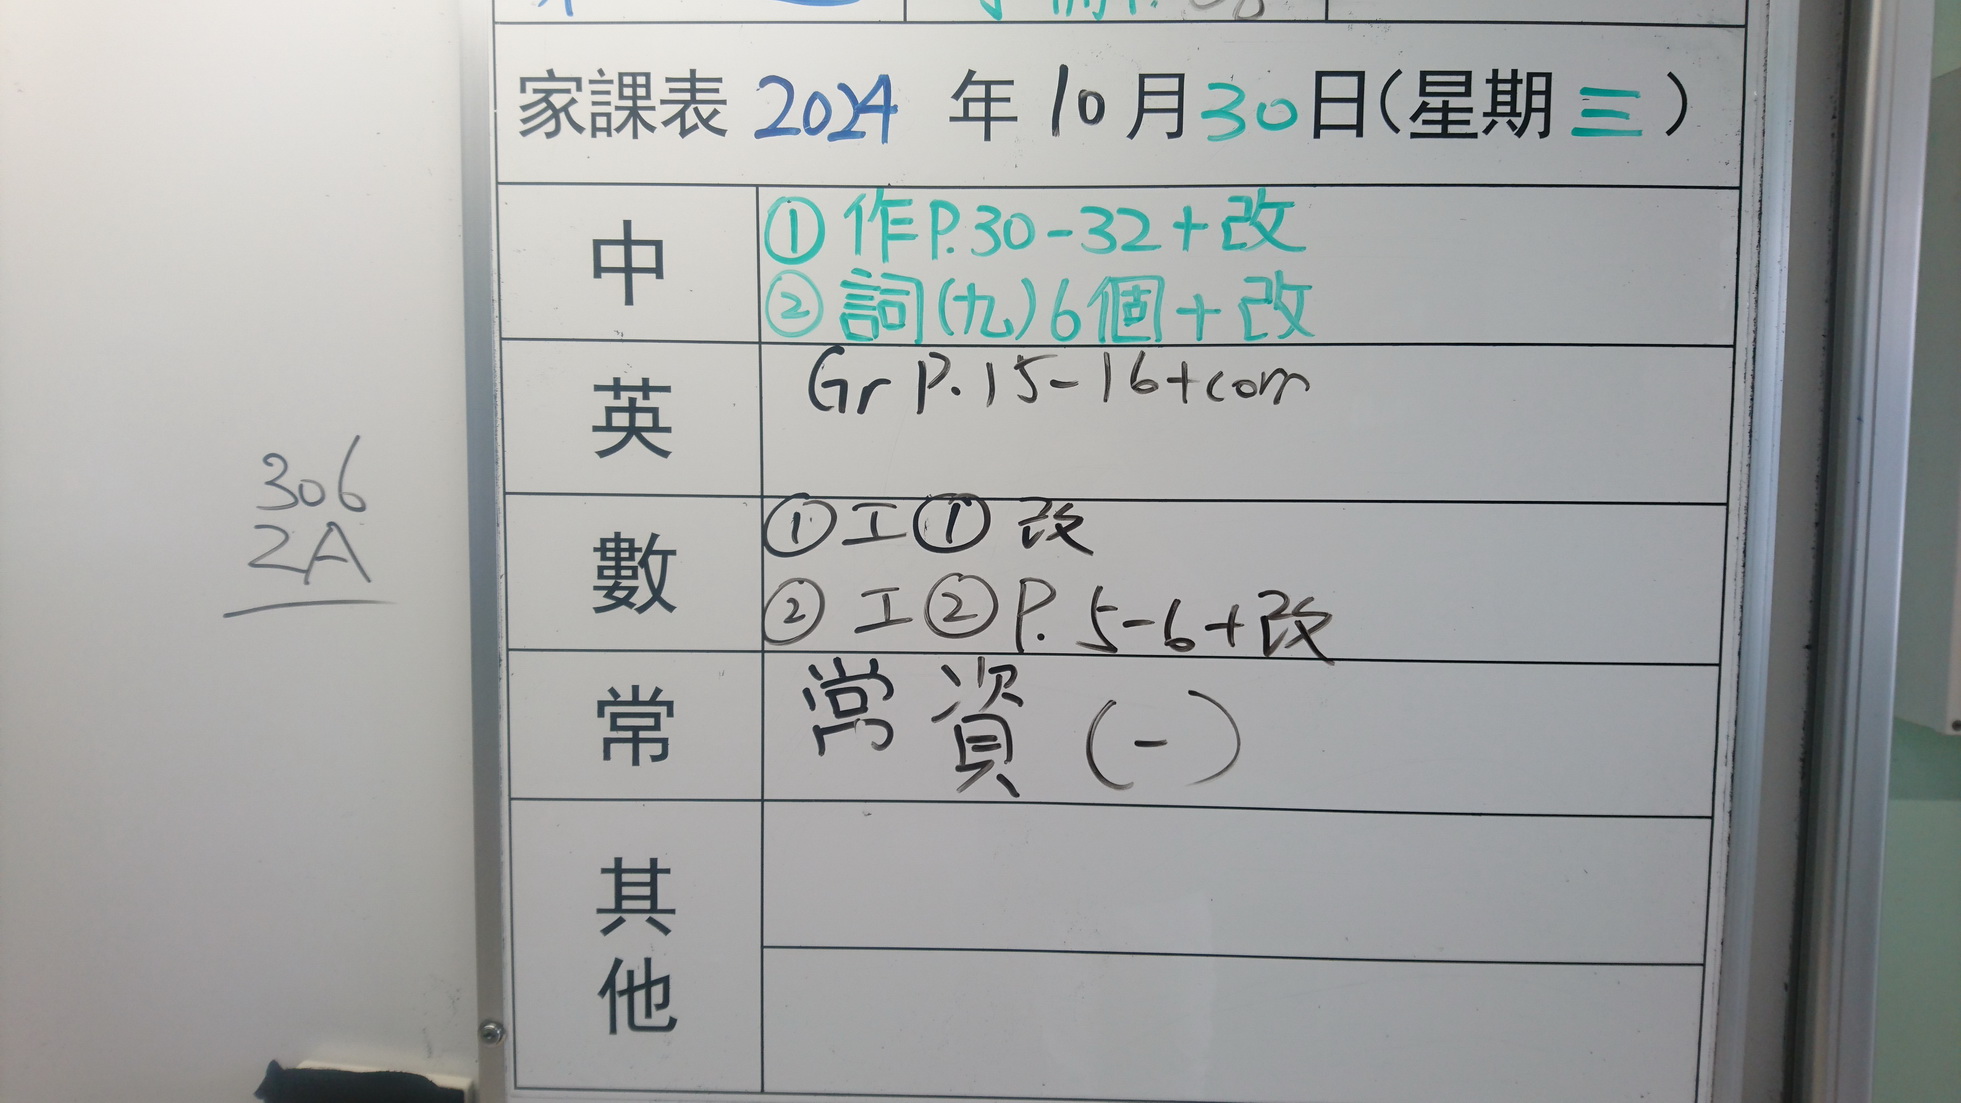 家課表 2024 年 10 月 30 日(星期 三)
中
① 作P.30-32+改
② 詞(九)6個+改
英
Gr P.15-16+com
數
① 工① 改
② 工② P.5-6+改
常
常資(一)
其他
306
2A